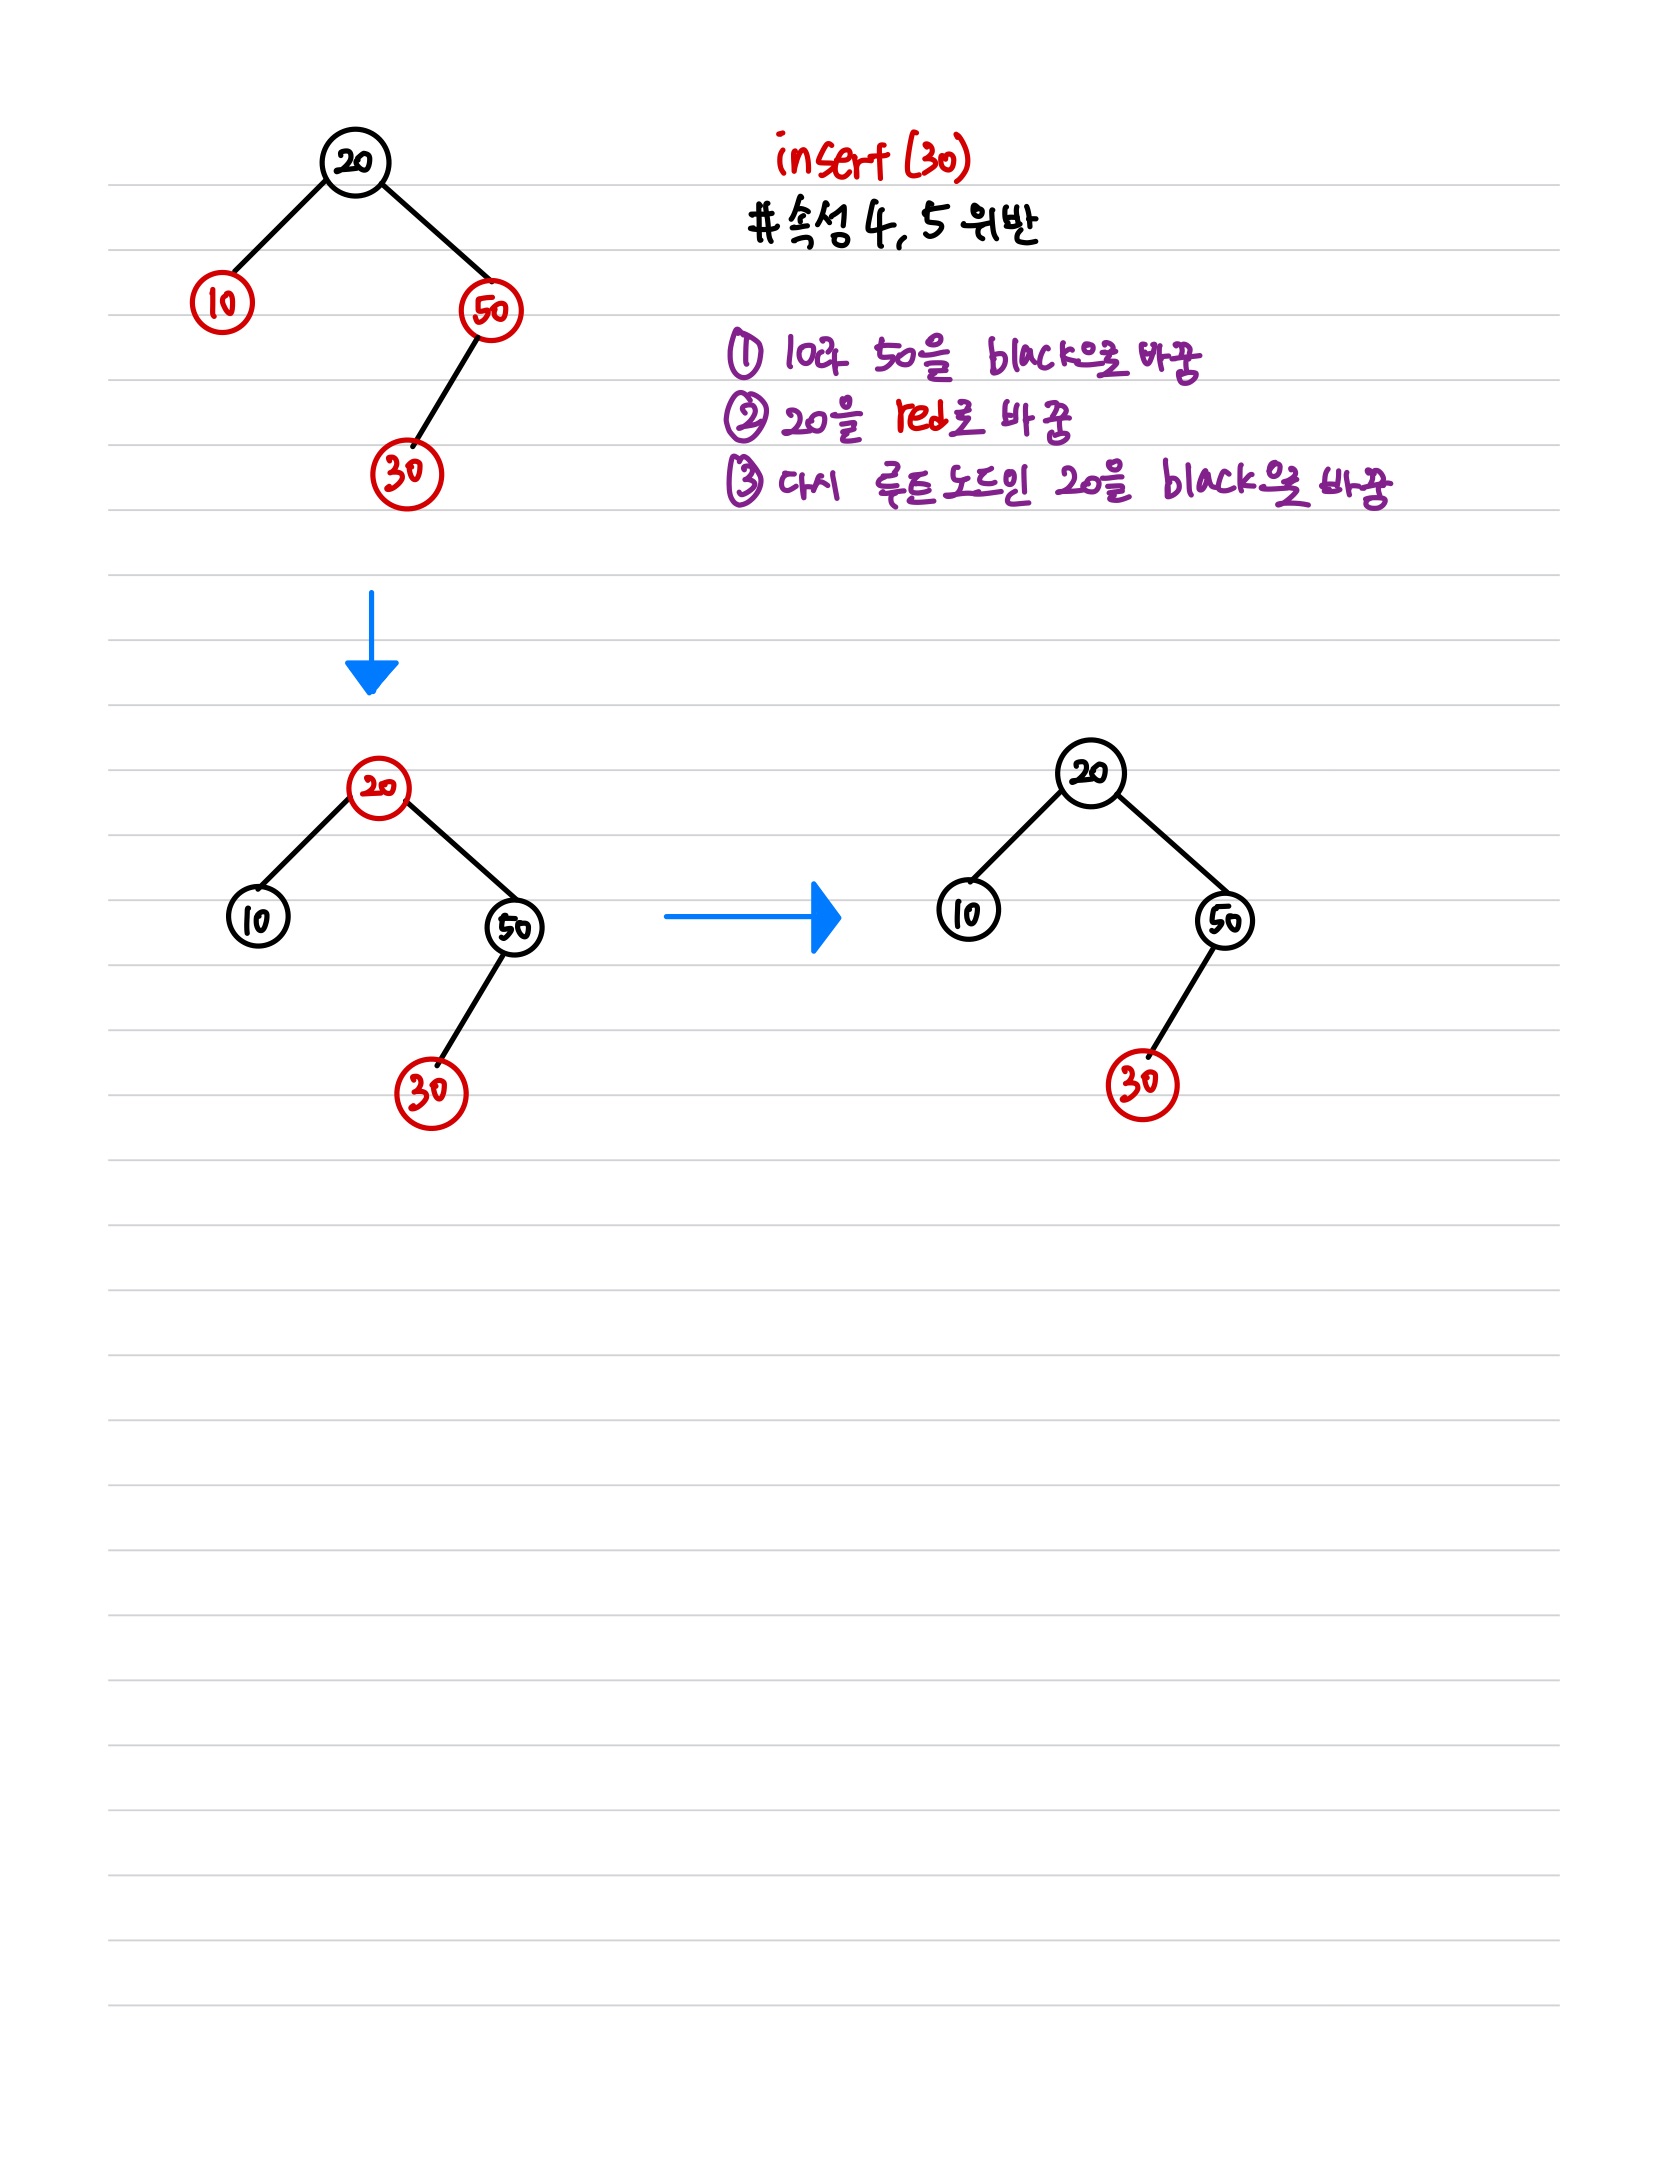 20
10
50
30
insert(30)
#속성 4, 5 위반
① 10과 50을 black으로 바꿈
② 20을 red로 바꿈
③ 다시 루트 노드인 20을 black으로 바꿈
20
10
50
30
20
10
50
30